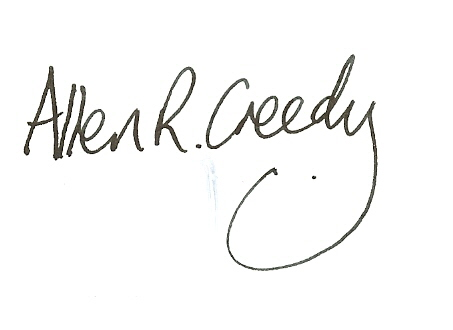 Allen R. Creedy